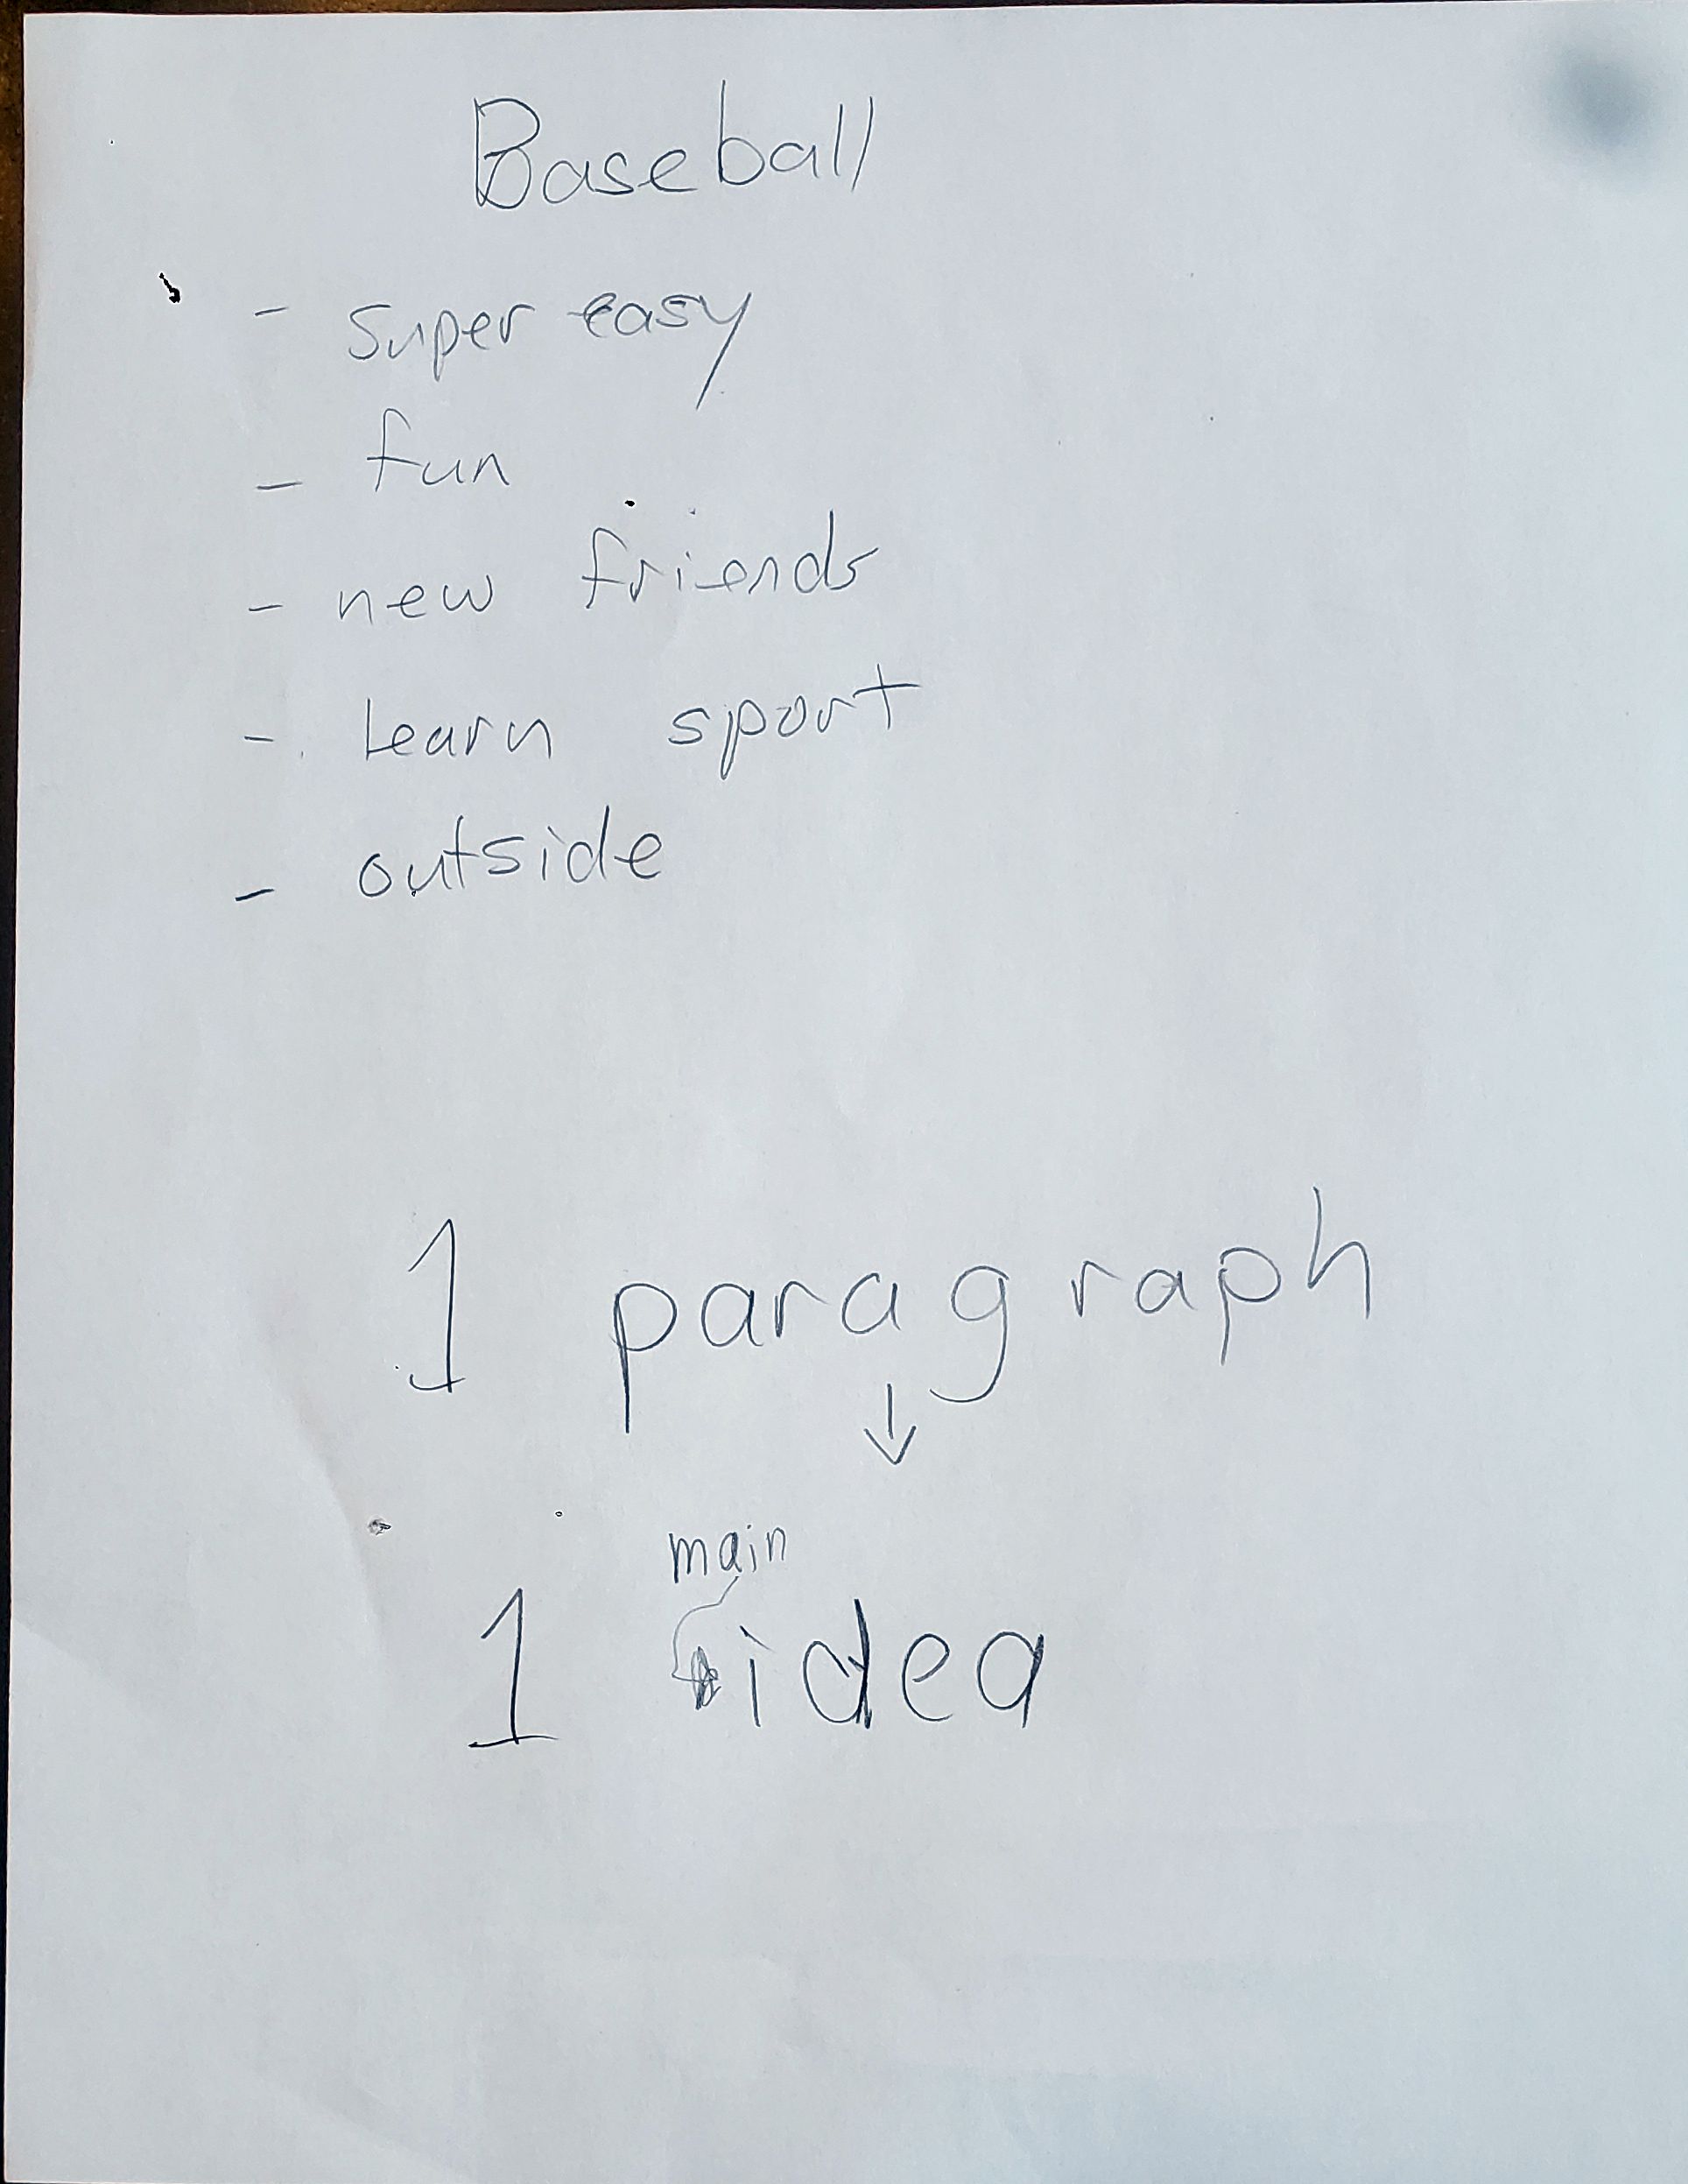 Baseball
- super easy
- fun
- new friends
- learn sport
- outside
1 paragraph
↓
main
1 idea